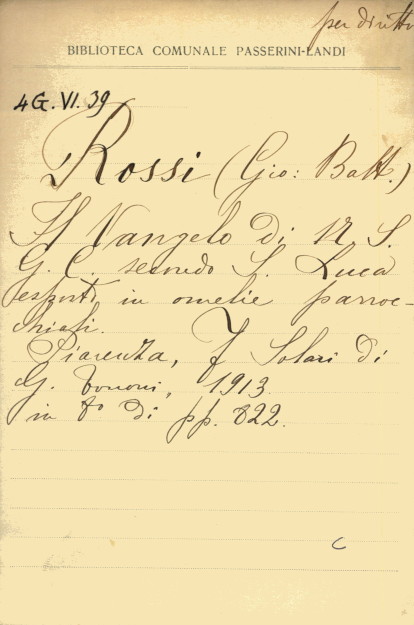 per diritto
BIBLIOTECA COMUNALE PASSERINI-LANDI
4G.VI.39
Rossi (Gio: Batt.)
Il Vangelo di N. S.
G. C. secondo S. Luca
esposto in omelie parroc-
chiali.
Piacenza, F. Solari di
G. Tononi, 1913
in 8° di pp. 822.